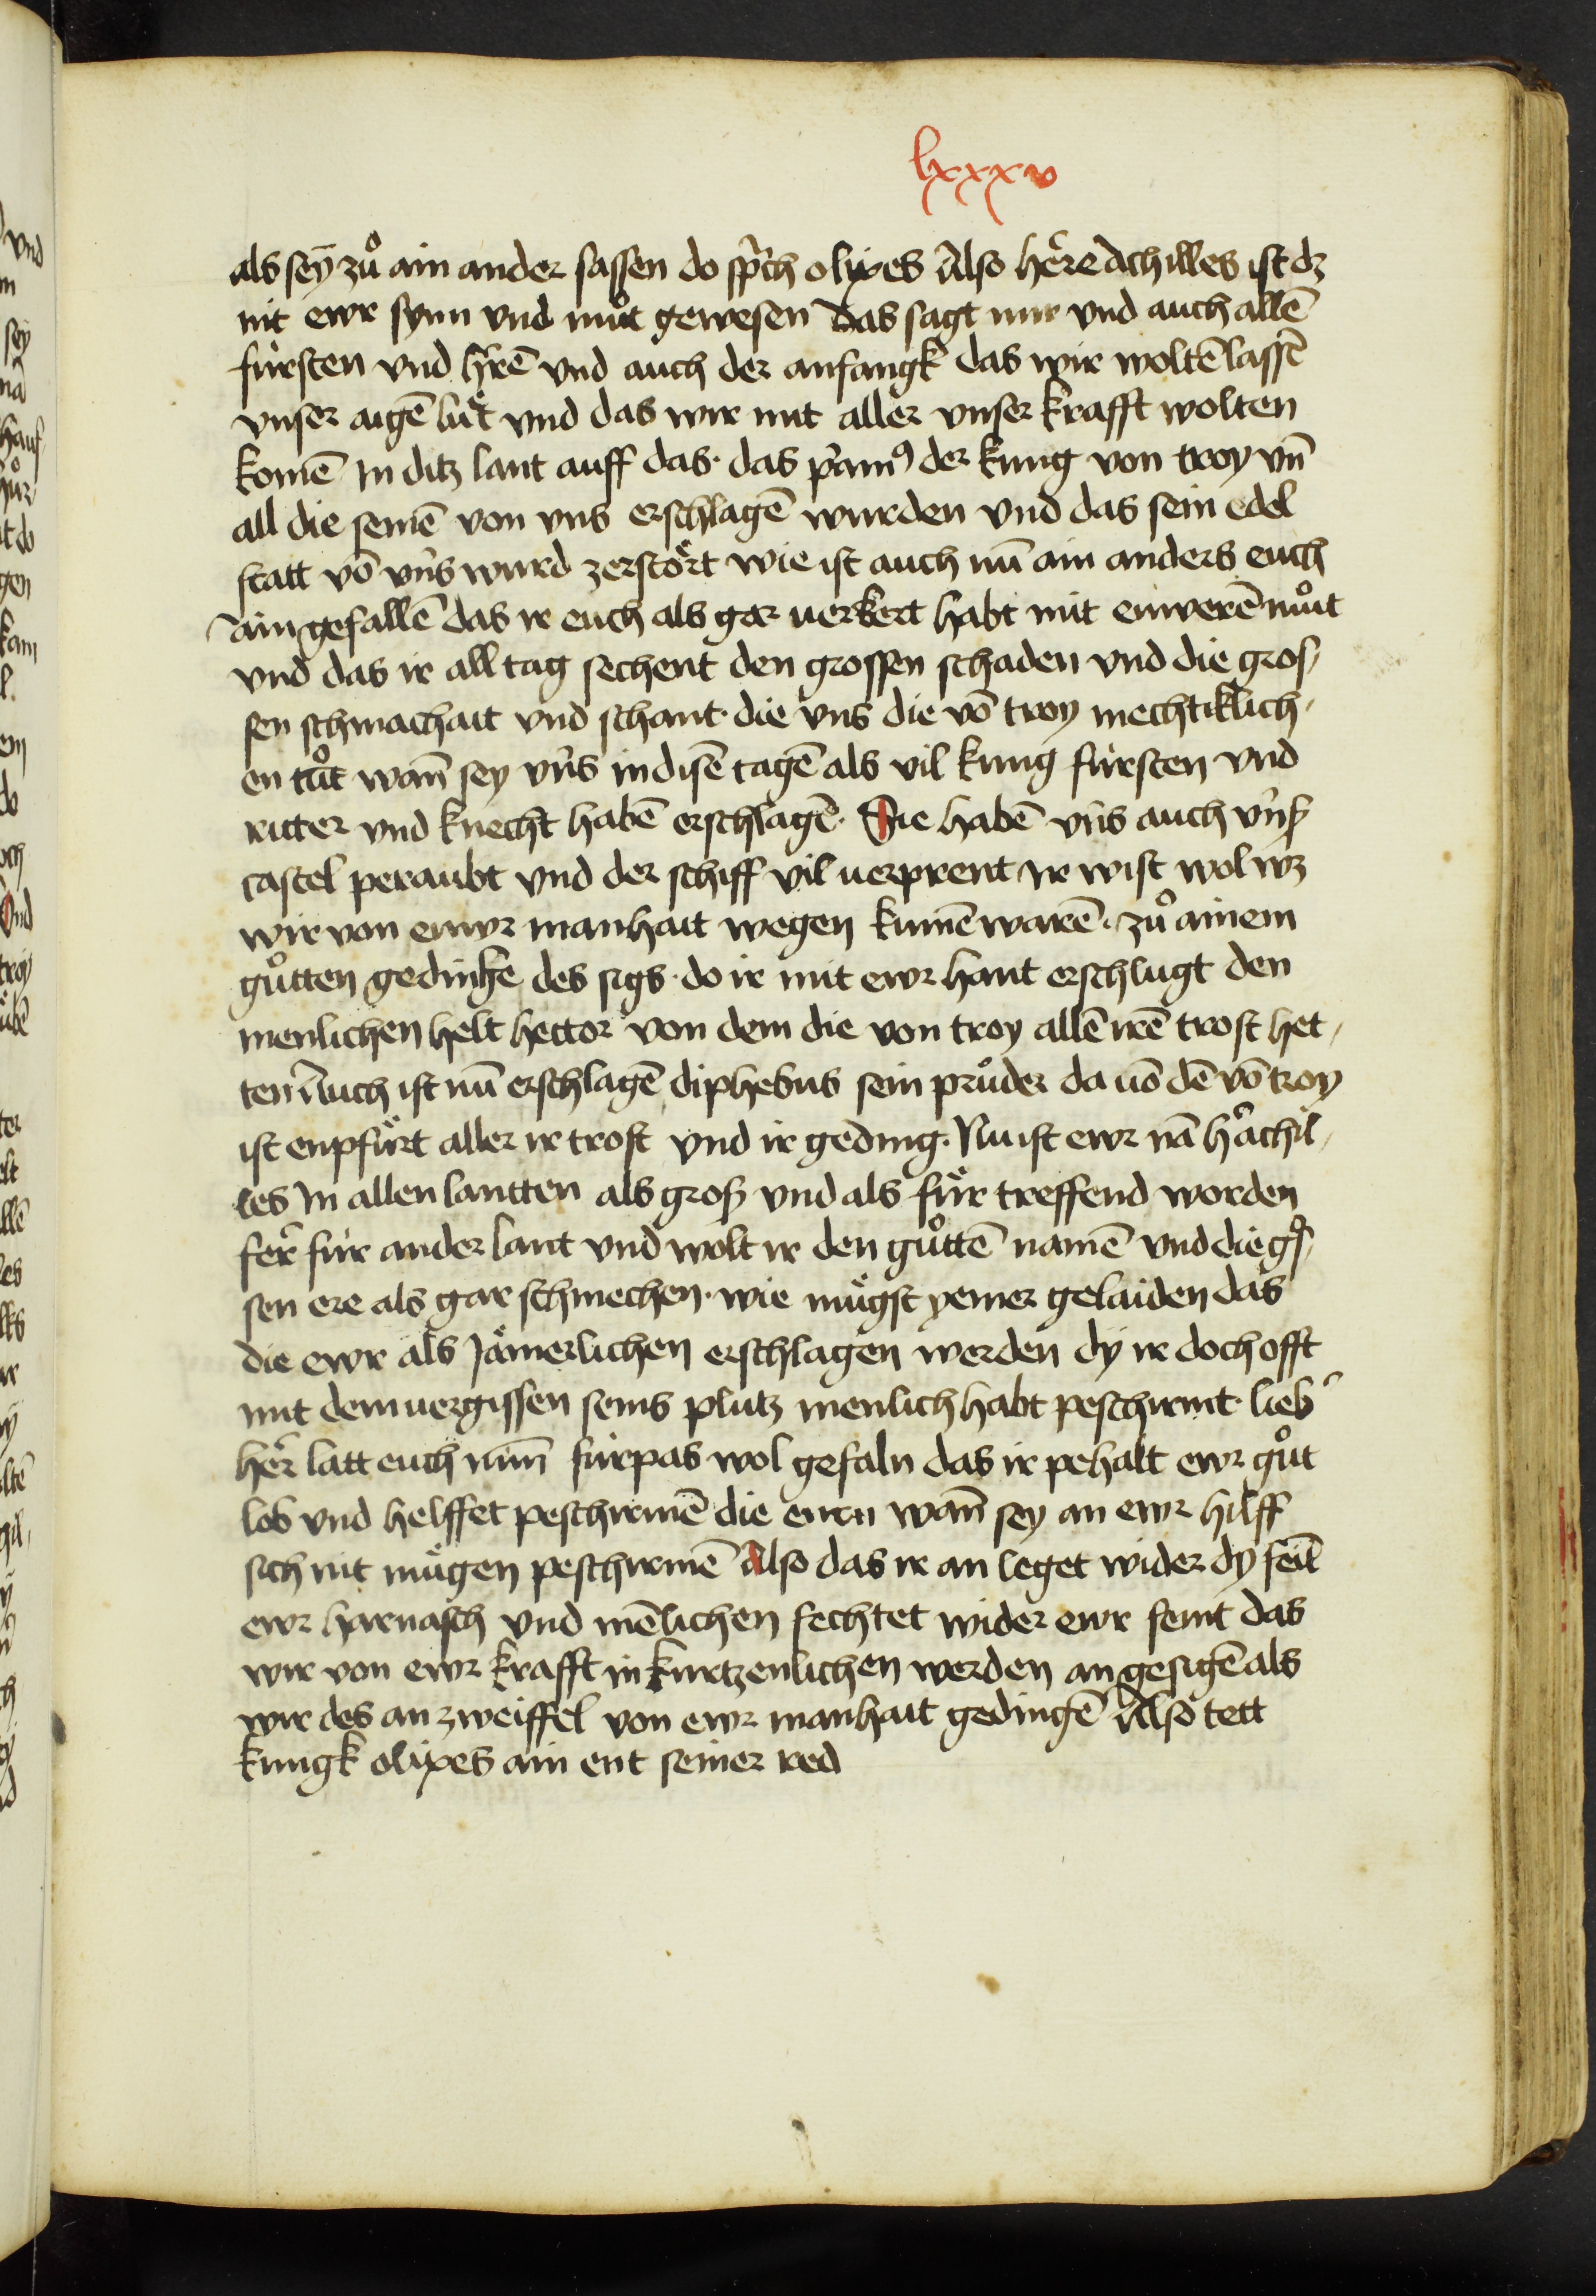 lxxxv
als seÿ zů ain ander sassen do sprͣch olixes Also hère Achilles ist dz
nit ewr synn vnd můt gewesen Das sagt mir vnd auch allē
fürsten vnd h̄rē vnd auch der anfangk das wir woltē lassē
vnser aigē lüt vnd das wir mit aller vnser krafft wolten
komē In ditz lant auff das · das pͥamꝰ der kung von troy vn̄
all die seinē von vns erschlagē wurden vnd das sein edel
statt vō vns wurd zerstört wie ist auch nū ain anders euch
ain gefallē das ir euch als gar uerkert habt mit eiwerē můt
vnd das ir all tag sechent den grossen schaden vnd die gros/
sen schmachait vnd schant · die vns die vō troy mechtiklich/
en tůt wan̄ sey vns in disē tagē als vil kung fürsten vnd
ritter vnd knecht habē erschlagē · Sie habē vns auch vnß
castel peraubt vnd der schiff vil uerprent Ir wist wol wz
wir von eiwr manhait wegen kumē warē · zů ainem
gůtten gedinke des sigs · do ir mit ewr hant erschlugt den
menlichen helt hector von dem die von troy allē irē trost het/
ten Auch ist nū erschlagē diphebus sein průder da uō dē vō troy
ist enpfürt aller ir trost vnd ir geding · Nu ist ewr nā h̄ achil/
les In allen lantten als groß vnd als für treffend worden
fer̄ für ander lant vnd wolt ir den gůttē namē vnd die gͦs/
sen ere als gar schmechen · wie mügst yemer gelaiden das
die ewr als Jämerlichen erschlagen werden dÿ ir doch offt
mit dem uergissen seins plutz menlich habt peschirmt · lieb͛
her̄ latt euch nun̄ fürpas wol gefaln das ir pehalt ewr gůt
lob vnd helffet peschirmē die eurn wan̄ sey an ewr hilff
sich nit mügen peschirmē Also das ir an leget wider dÿ fein̄
ewr harnasch vnd mēlichen fechtet wider ewr feint das
wir von ewr krafft in kurtzenlichen werden an gesigē als
wir des an zweiffel von ewr manhait gedingē Also tett
kungk olixes ain ent seiner red